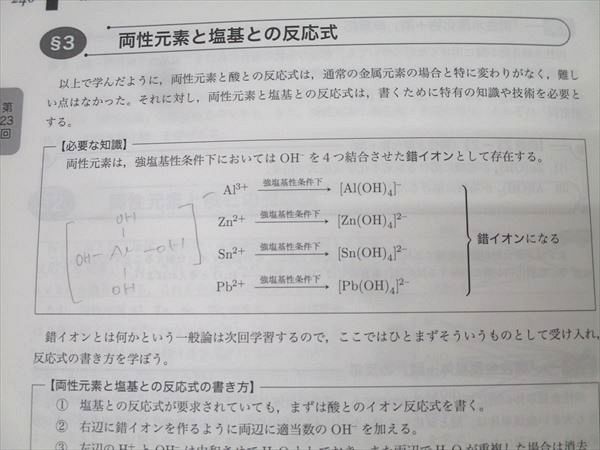 240
§3 両性元素と塩基との反応式
第
23
回
以上で学んだように，両性元素と酸との反応式は，通常の金属元素の場合と特に変わりがなく，難し
い点はなかった。それに対し，両性元素と塩基との反応式は，書くために特有の知識や技術を必要と
する。
【必要な知識】
両性元素は，強塩基性条件下においては OH⁻ を４つ結合させた錯イオンとして存在する。
Al³⁺ 強塩基性条件下 [Al(OH)₄]⁻
Zn²⁺ 強塩基性条件下 [Zn(OH)₄]²⁻
Sn²⁺ 強塩基性条件下 [Sn(OH)₄]²⁻
Pb²⁺ 強塩基性条件下 [Pb(OH)₄]²⁻
錯イオンになる
OH
OH - Al - OH
OH
錯イオンとは何かという一般論は次回学習するので，ここではひとまずそういうものとして受け入れ，
反応式の書き方を学ぼう。
【両性元素と塩基との反応式の書き方】
① 塩基との反応が要求されていても，まずは酸とのイオン反応式を書く。
② 右辺に錯イオンを作るように両辺に適当数の OH⁻ を加える。
③ 左辺の H⁺ と OH⁻ は中和させて H₂O としておき，また両辺で H₂O が重複した場合は消去